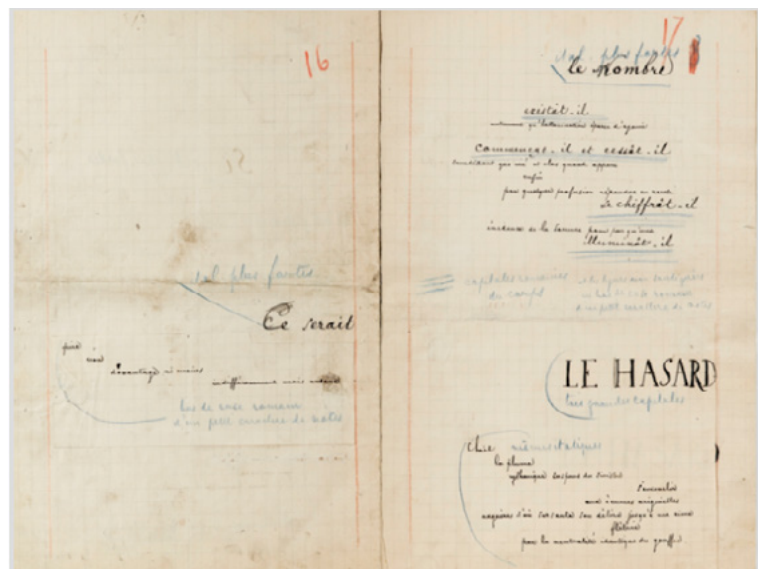 16
ital. plus fortes
Ce serait
pire
non
davantage ni moins
indifféremment mais autant
bas de casse romain
d'un petit caractère de notes
17
ital. plus fortes
le Nombre
existât-il
autrement qu'hallucination éparse d'agonie
commençât-il et cessât-il
sourdant que nié et clos quand apparu
enfin
par quelque profusion répandue en rareté
se chiffrât-il
évidence de la somme pour peu qu'une
illuminât-il
capitales romaines
du corps
LE HASARD
très grandes capitales
Choit
mêmes italiques
la plume
rythmique suspens du sinistre
s'ensevelir
aux écumes originelles
naguères d'où sursauta son délire jusqu'à une cime
flétrie
par la neutralité identique du gouffre